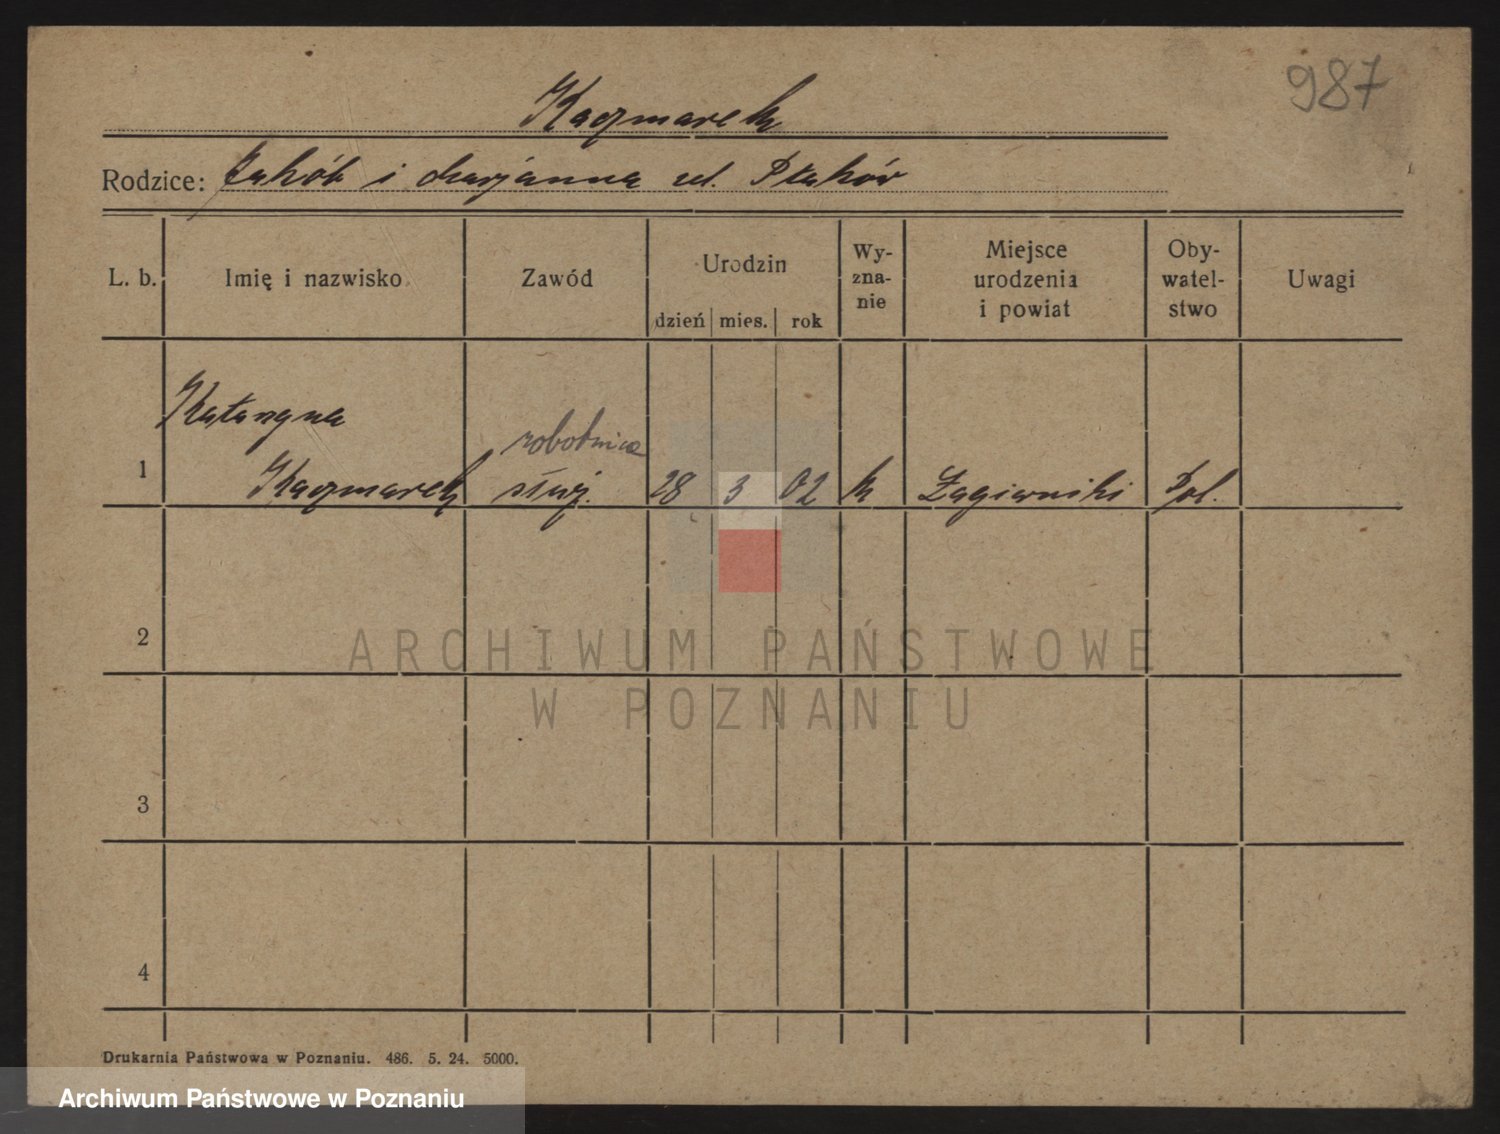 987
Kaczmarek
Rodzice: Jakób i Marjanna
L. b. Imię i nazwisko Zawód Urodzin Wy-zna-nie Miejsce urodzenia i powiat Oby-watel-stwo Uwagi
dzień mies. rok
Katarzyna
robotnica
1 Kaczmarek służ. 28 3 02 k Łagiewniki Pol.
2
ARCHIWUM PAŃSTWOWE
W POZNANIU
3
4
Drukarnia Państwowa w Poznaniu. 486. 5. 24. 5000.
Archiwum Państwowe w Poznaniu